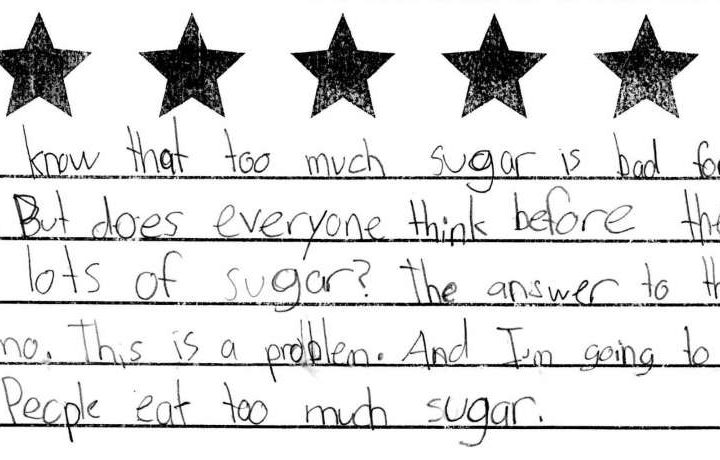 know that too much sugar is bad
But does everyone think before
lots of sugar? The answer to
no. This is a problem. And I'm going to
People eat too much sugar.